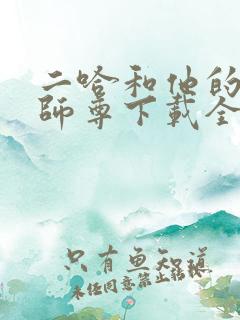 二哈和他的
師尊下載全
只有魚知道
未任同意禁止转林